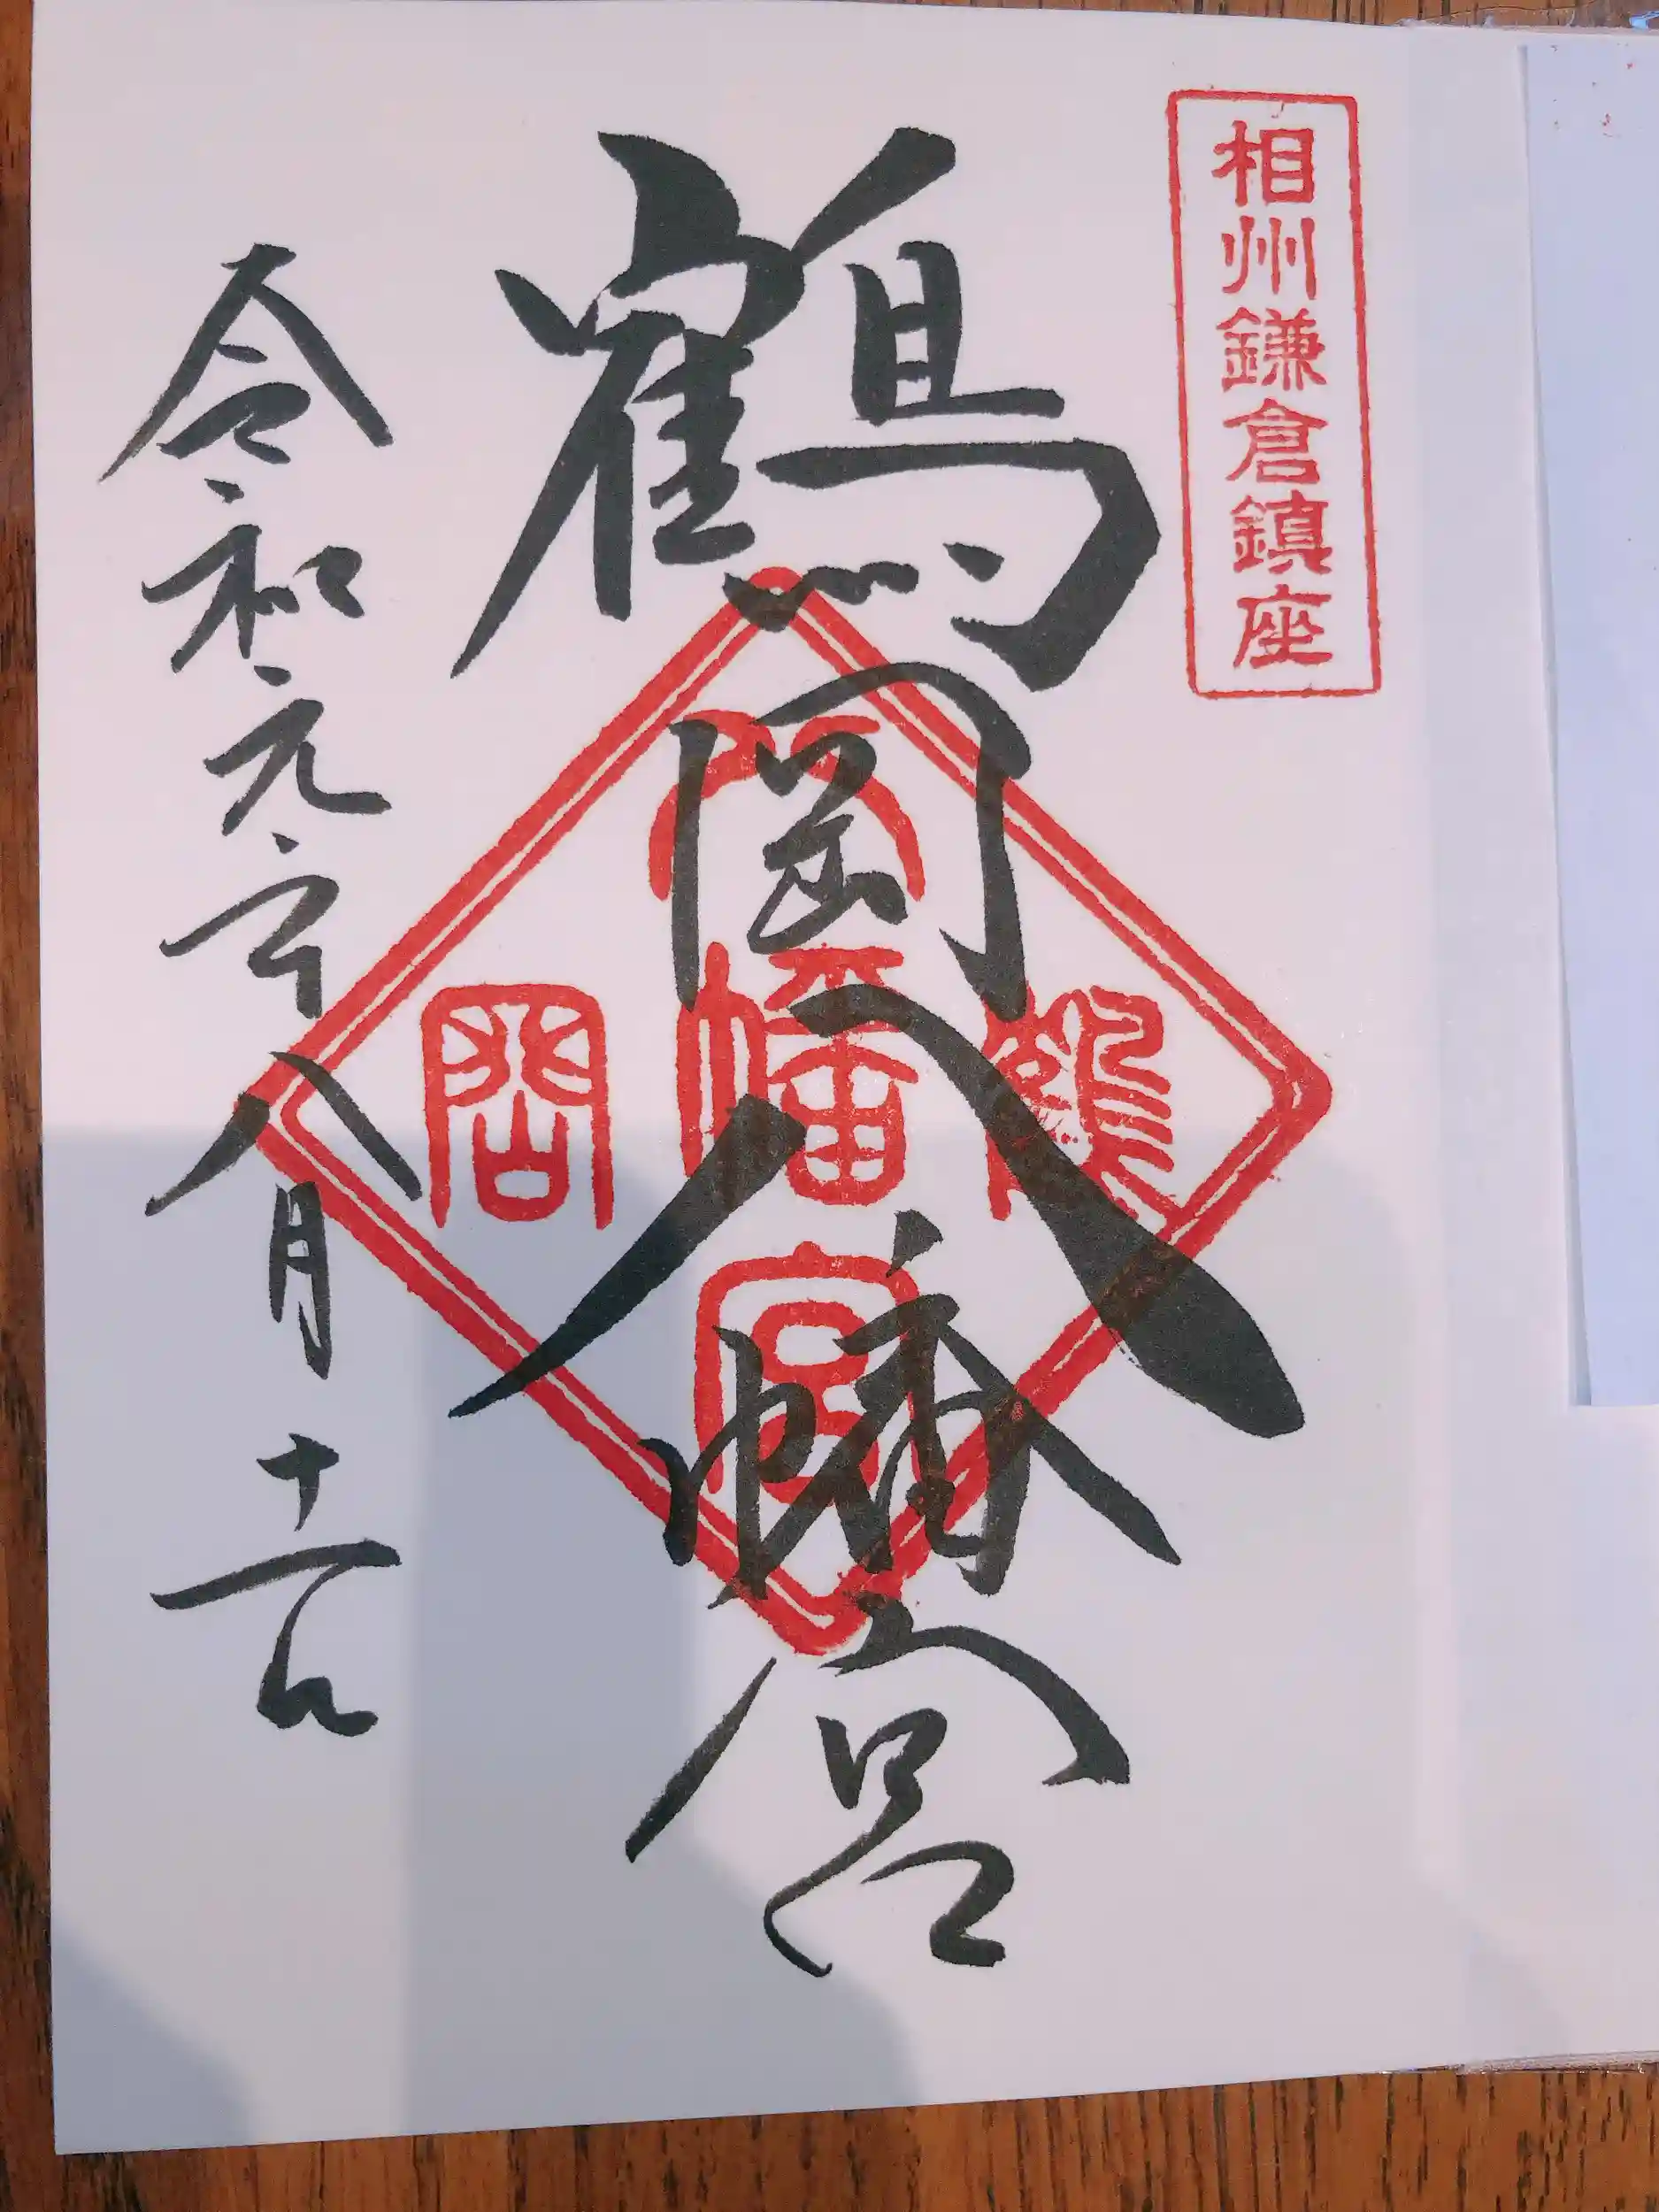 相州鎌倉鎮座
鶴岡八幡宮
鶴岡
八幡宮
令和元年八月十一日